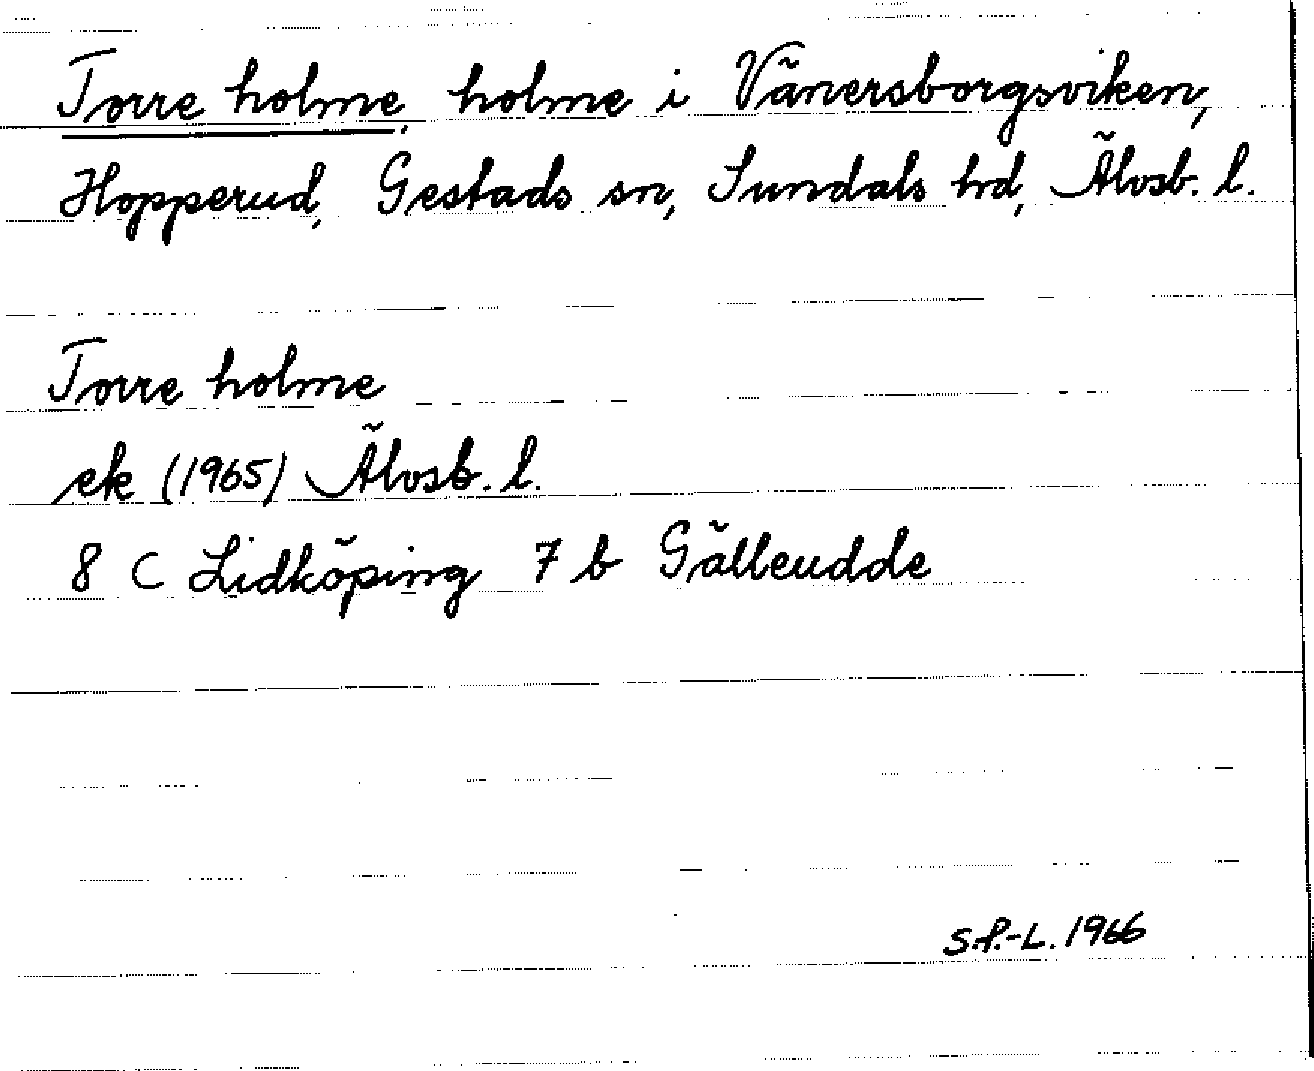 Torre holme, holme i Vänersborgsviken,
Hopperud, Gestads sn, Sundals hd, Älvsb. l.
Torre holme
ek (1965) Älvsb. l.
8 C Lidköping 7 b Gälleudde
S.P.-L. 1966